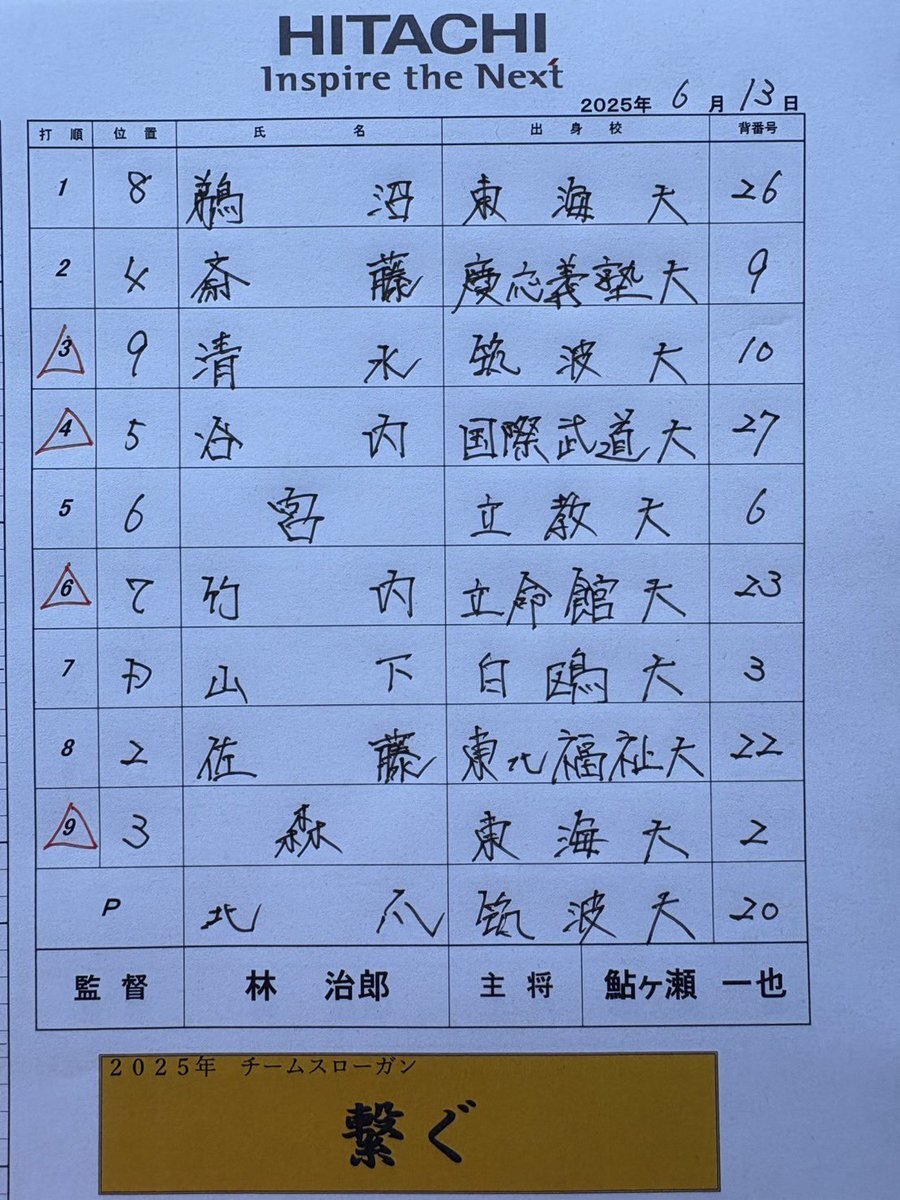 HITACHI
Inspire the Next
2025年 6月13日
打順 位置 氏名 出身校 背番号
1 8 鵜沼 東海大 26
2 4 斎藤 慶応義塾大 9
3 9 清水 筑波大 10
4 5 谷内 国際武道大 27
5 6 宮 立教大 6
6 7 竹内 立命館大 23
7 D 山下 白鴎大 3
8 2 佐藤 東北福祉大 22
9 3 森 東海大 2
P 北爪 筑波大 20
監督 林 治郎 主将 鮎ヶ瀬 一也
2025年 チームスローガン
繋ぐ